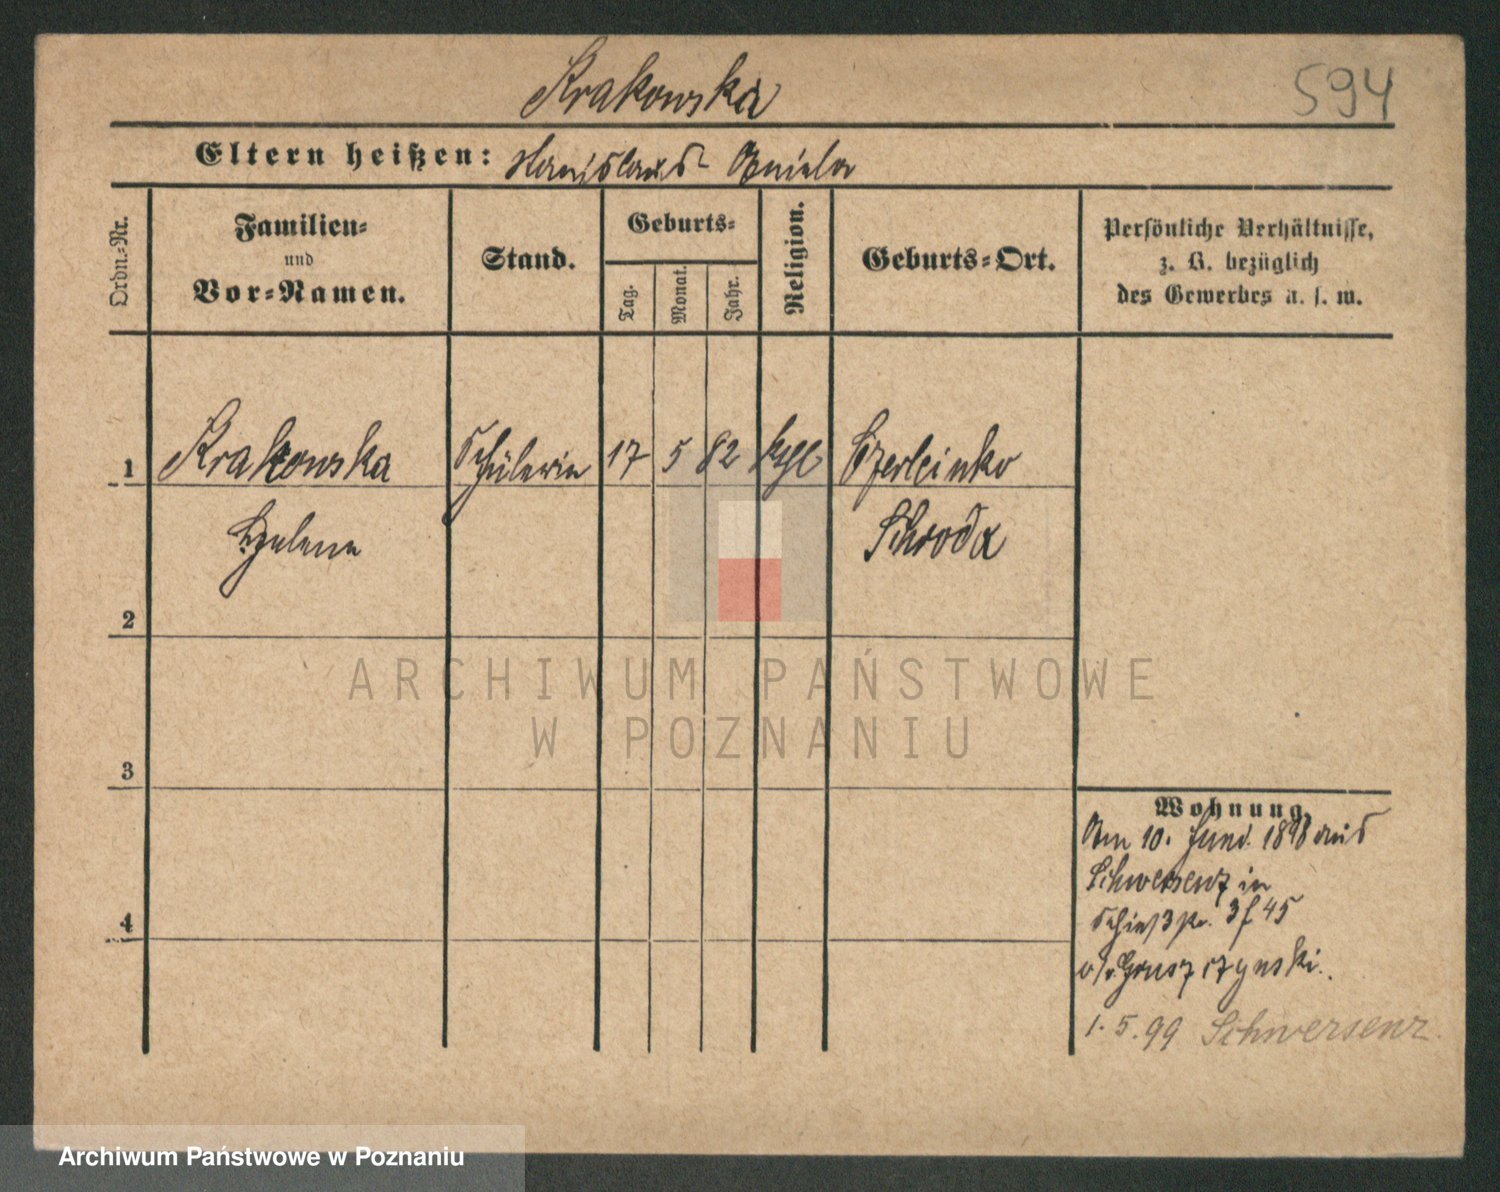 Krakowska
594
Eltern heißen: Stanislaus Aniela
Ordn.-Nr.
Familien-
und
Vor-Namen.
Stand.
Geburts-
Tag.
Monat.
Jahr.
Religion.
Geburts-Ort.
Persönliche Verhältnisse,
z. B. bezüglich
des Gewerbes u. s. w.
1 Krakowska Schülerin 17 5 82 Czerleinko
Helene Schroda
2
3
4
Wohnung.
Am 10. Juni 1898 aus
Schwersenz in
45
Gruszczynski.
1. 5. 99 Schwersenz
ARCHIWUM PAŃSTWOWE
W POZNANIU
Archiwum Państwowe w Poznaniu